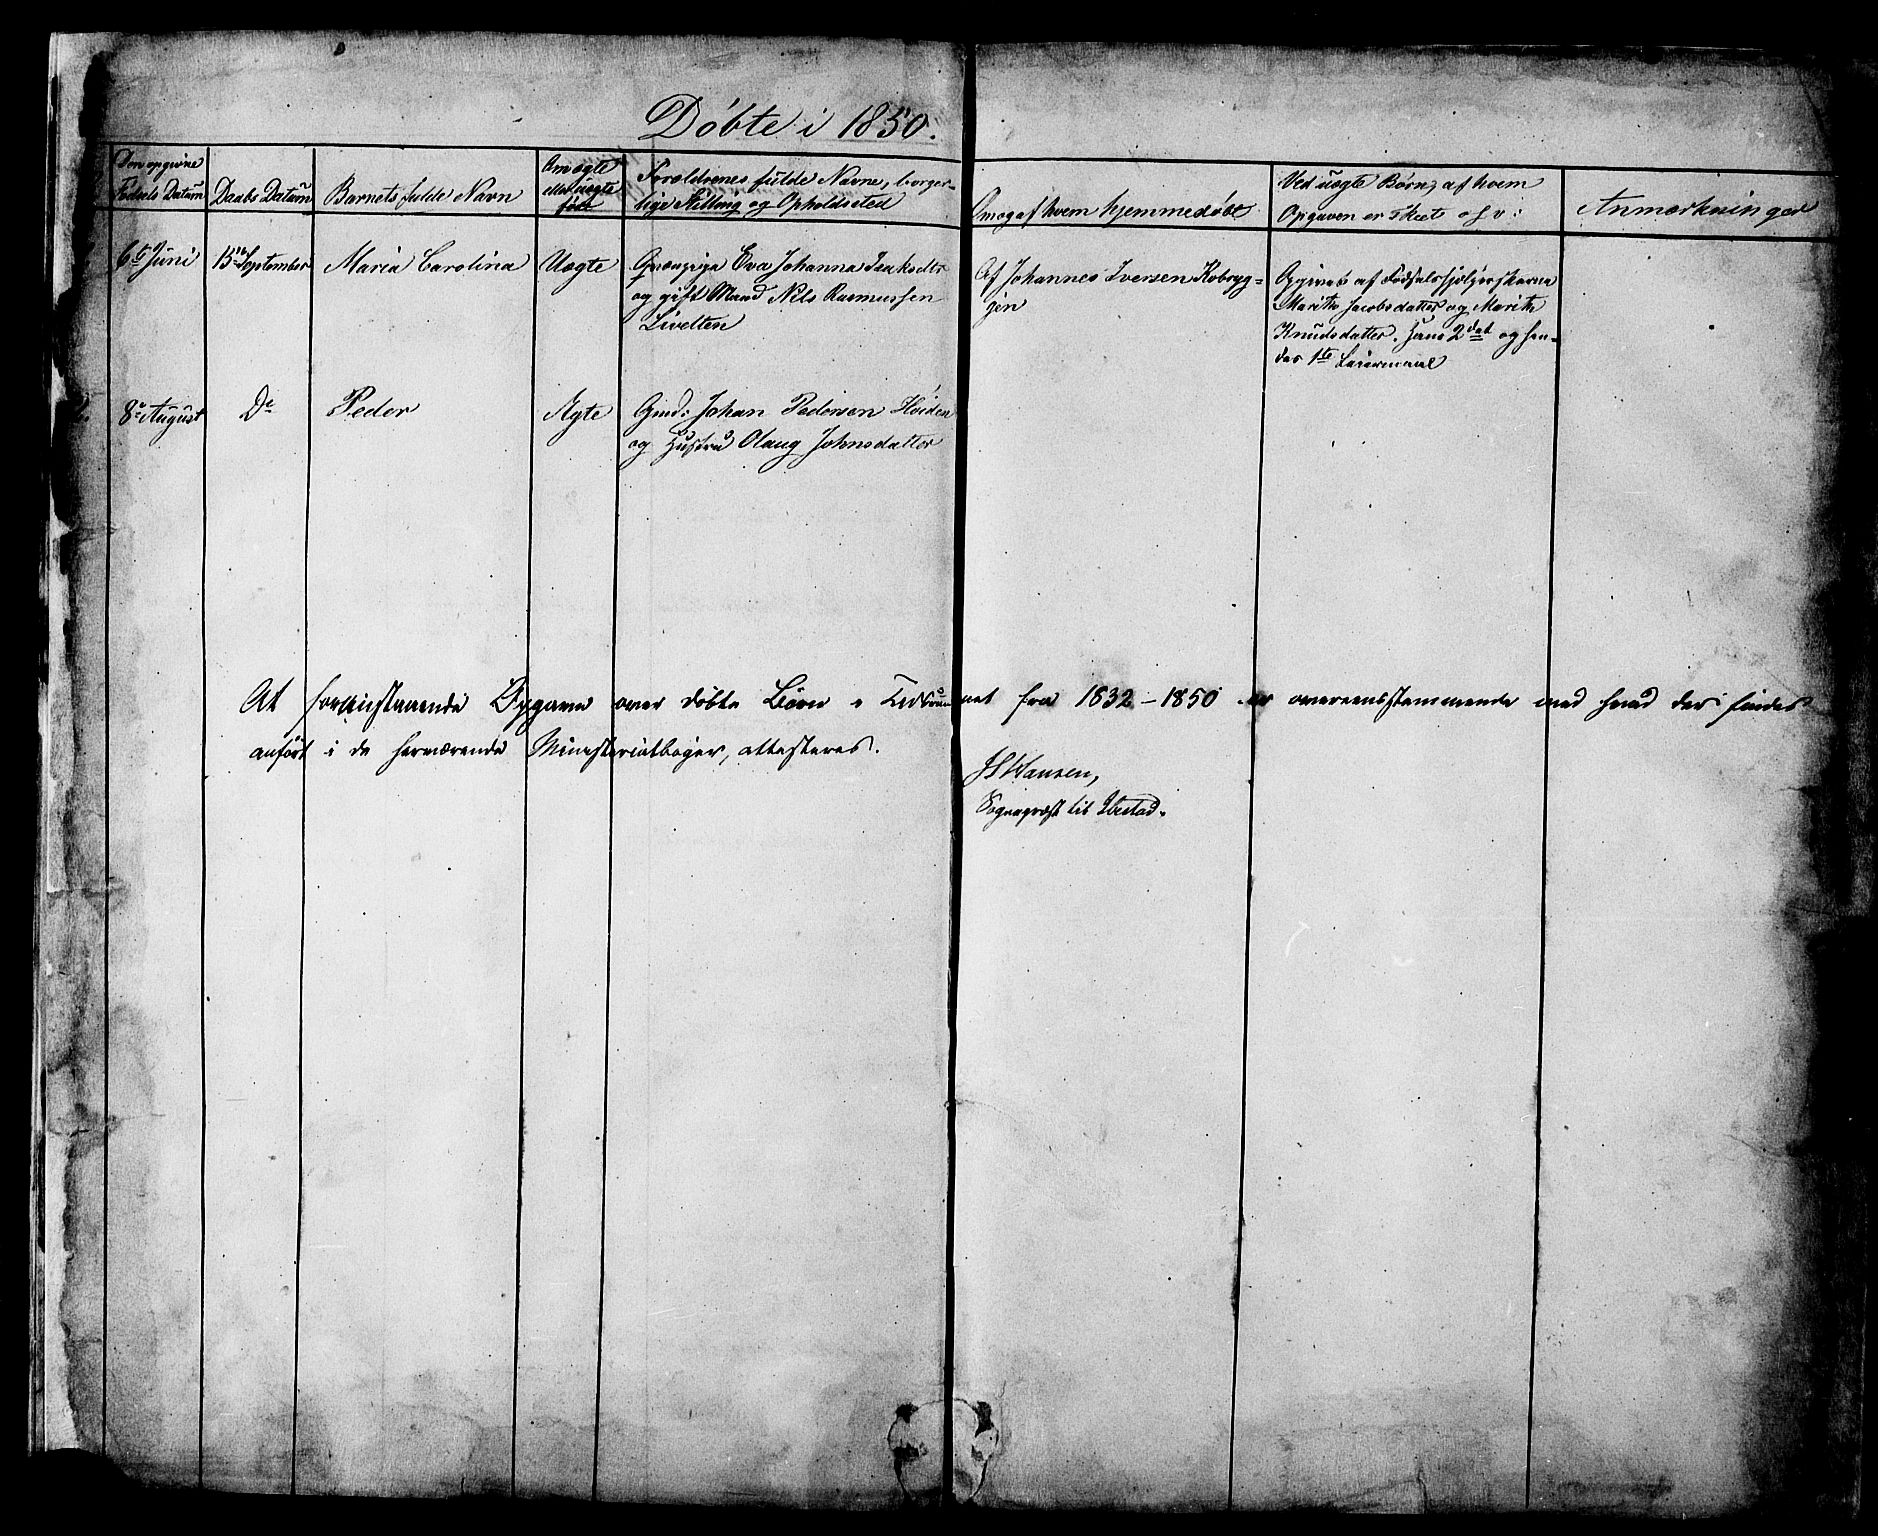 Døbte i 1850.
Den opgivne
Fødsels Datum
Daabs Datum
Barnets fulde Navn
Om ægte
eller uægte
født
Forældrenes fulde Navne, borger-
lige Stilling og Opholdssted
Om og af hvem hjemmedøbt
Ved uægte Børn, af hvem
Opgaven er skeet o s v:
Anmærkninger
6te Juni
15de September
Maria Carolina
Uægte
Grængpige Eva Johanna Isaksdtr
og gift Mand Nils Rasmussen
Livelten
Af Johannes Iversen Kobryg-
gen
Opgivet af Fødselshjelperskerne
Marith Jacobsdatter og Marith
Knudsdatter. Hans 2det og hen-
des 1ste Leiermaal
8de August
Do
Peder
Ægte
Gmd: Johan Pedersen Høiden
og Hustru Olaug Johnsdatter
At foranstaaende Opgave over døbte Børn i Tidsrummet fra 1832-1850 er overeensstemmende med hvad der findes
anført i de herværende Ministerialbøger, attesteres.
Hansen,
Sognepræst til Ibestad.